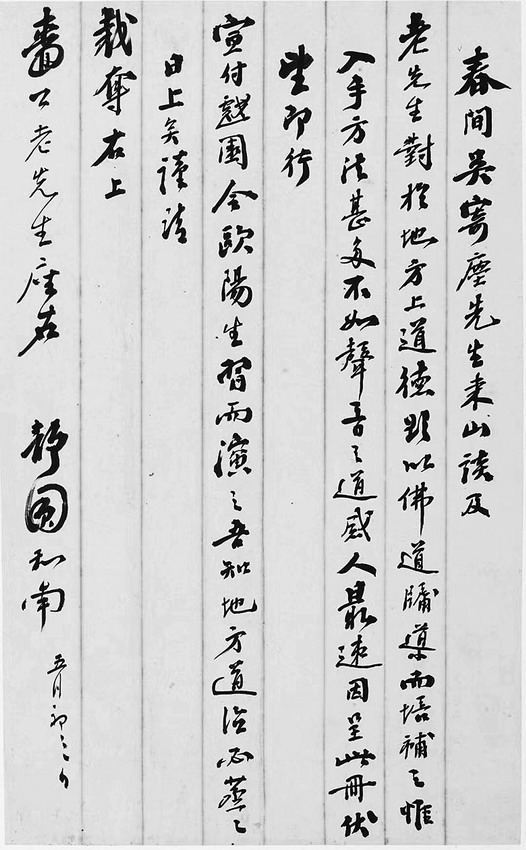 春間吳寄塵先生来山談及
老先生對於地方上道德點以佛道牖導而培補之惟
入手方法甚多不如聲音之道感人最速因呈此冊伏
望即行
宣付觀園令歐陽生習而演之吾知地方道德必蒸之
日上矣謹請
裁奪右上
嗇公老先生座右
靜圓和南
五月初三日